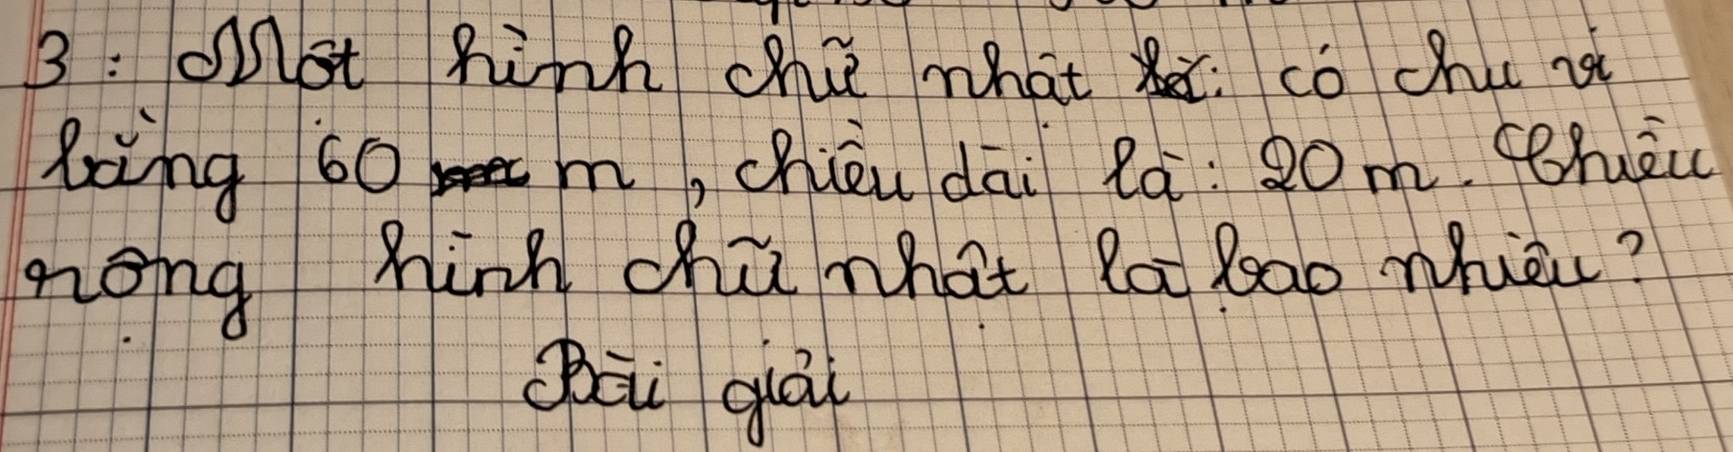 3: Một hình chữ nhật có chu vi
bằng 60 m, chiều dài là: 20 m. Chiều
rộng hình chữ nhật là bao nhiêu?
Bài giải